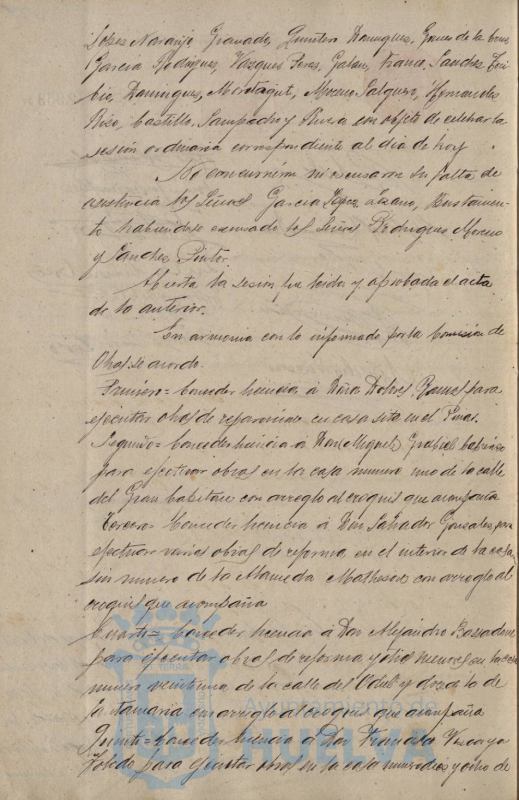 Lopez Naranjo, Granado, Quintero Dominguez, Gomez de la Cruz,
Garcia Rodriguez, Vazquez Perez, Galan, Franco, Sanchez Tori
bio, Dominguez, Moreno Salguero, Hernandez
Rizo, Castillo, Sampedro y Rivera con objeto de celebrar la
sesión ordinaria correspondiente al dia de hoy
No concurrieron ni excusaron su falta de
asistencia los Señores Garcia Lopez, Lozano, Bustamen-
te habiendose excusado los Señores Rodriguez Moreno
y Sanchez Pintor.
Abierta la sesion fue leida y aprobada el acta
de la anterior.
En armonia con lo informado por la Comision de
Obras se acordó.
Primero= Conceder licencia á Doña Dolores para
ejecutar obras de reparacion en casa sita en el
Segundo= Conceder licencia á Don Miguel
para efectuar obras en la casa numero uno de la calle
del Gran Capitan con arreglo al croquis que acompaña
Tercero= Conceder licencia á Don Salvador Gonzalez para
efectuar varias obras de reforma en el interior de la casa
sin numero de la Alameda Matheson con arreglo al
croquis que acompaña
Cuarto= Conceder licencia á Don Alejandro
para ejecutar obras de reforma y otras menores en la casa
numero de la calle del y doce de la de
la con arreglo al croquis que acompaña
Quinto= Conceder licencia á Don Francisco Vizcaya
Toledo para ejecutar obras en la casa numero diez y ocho de
Ayuntamiento de
HUELVA